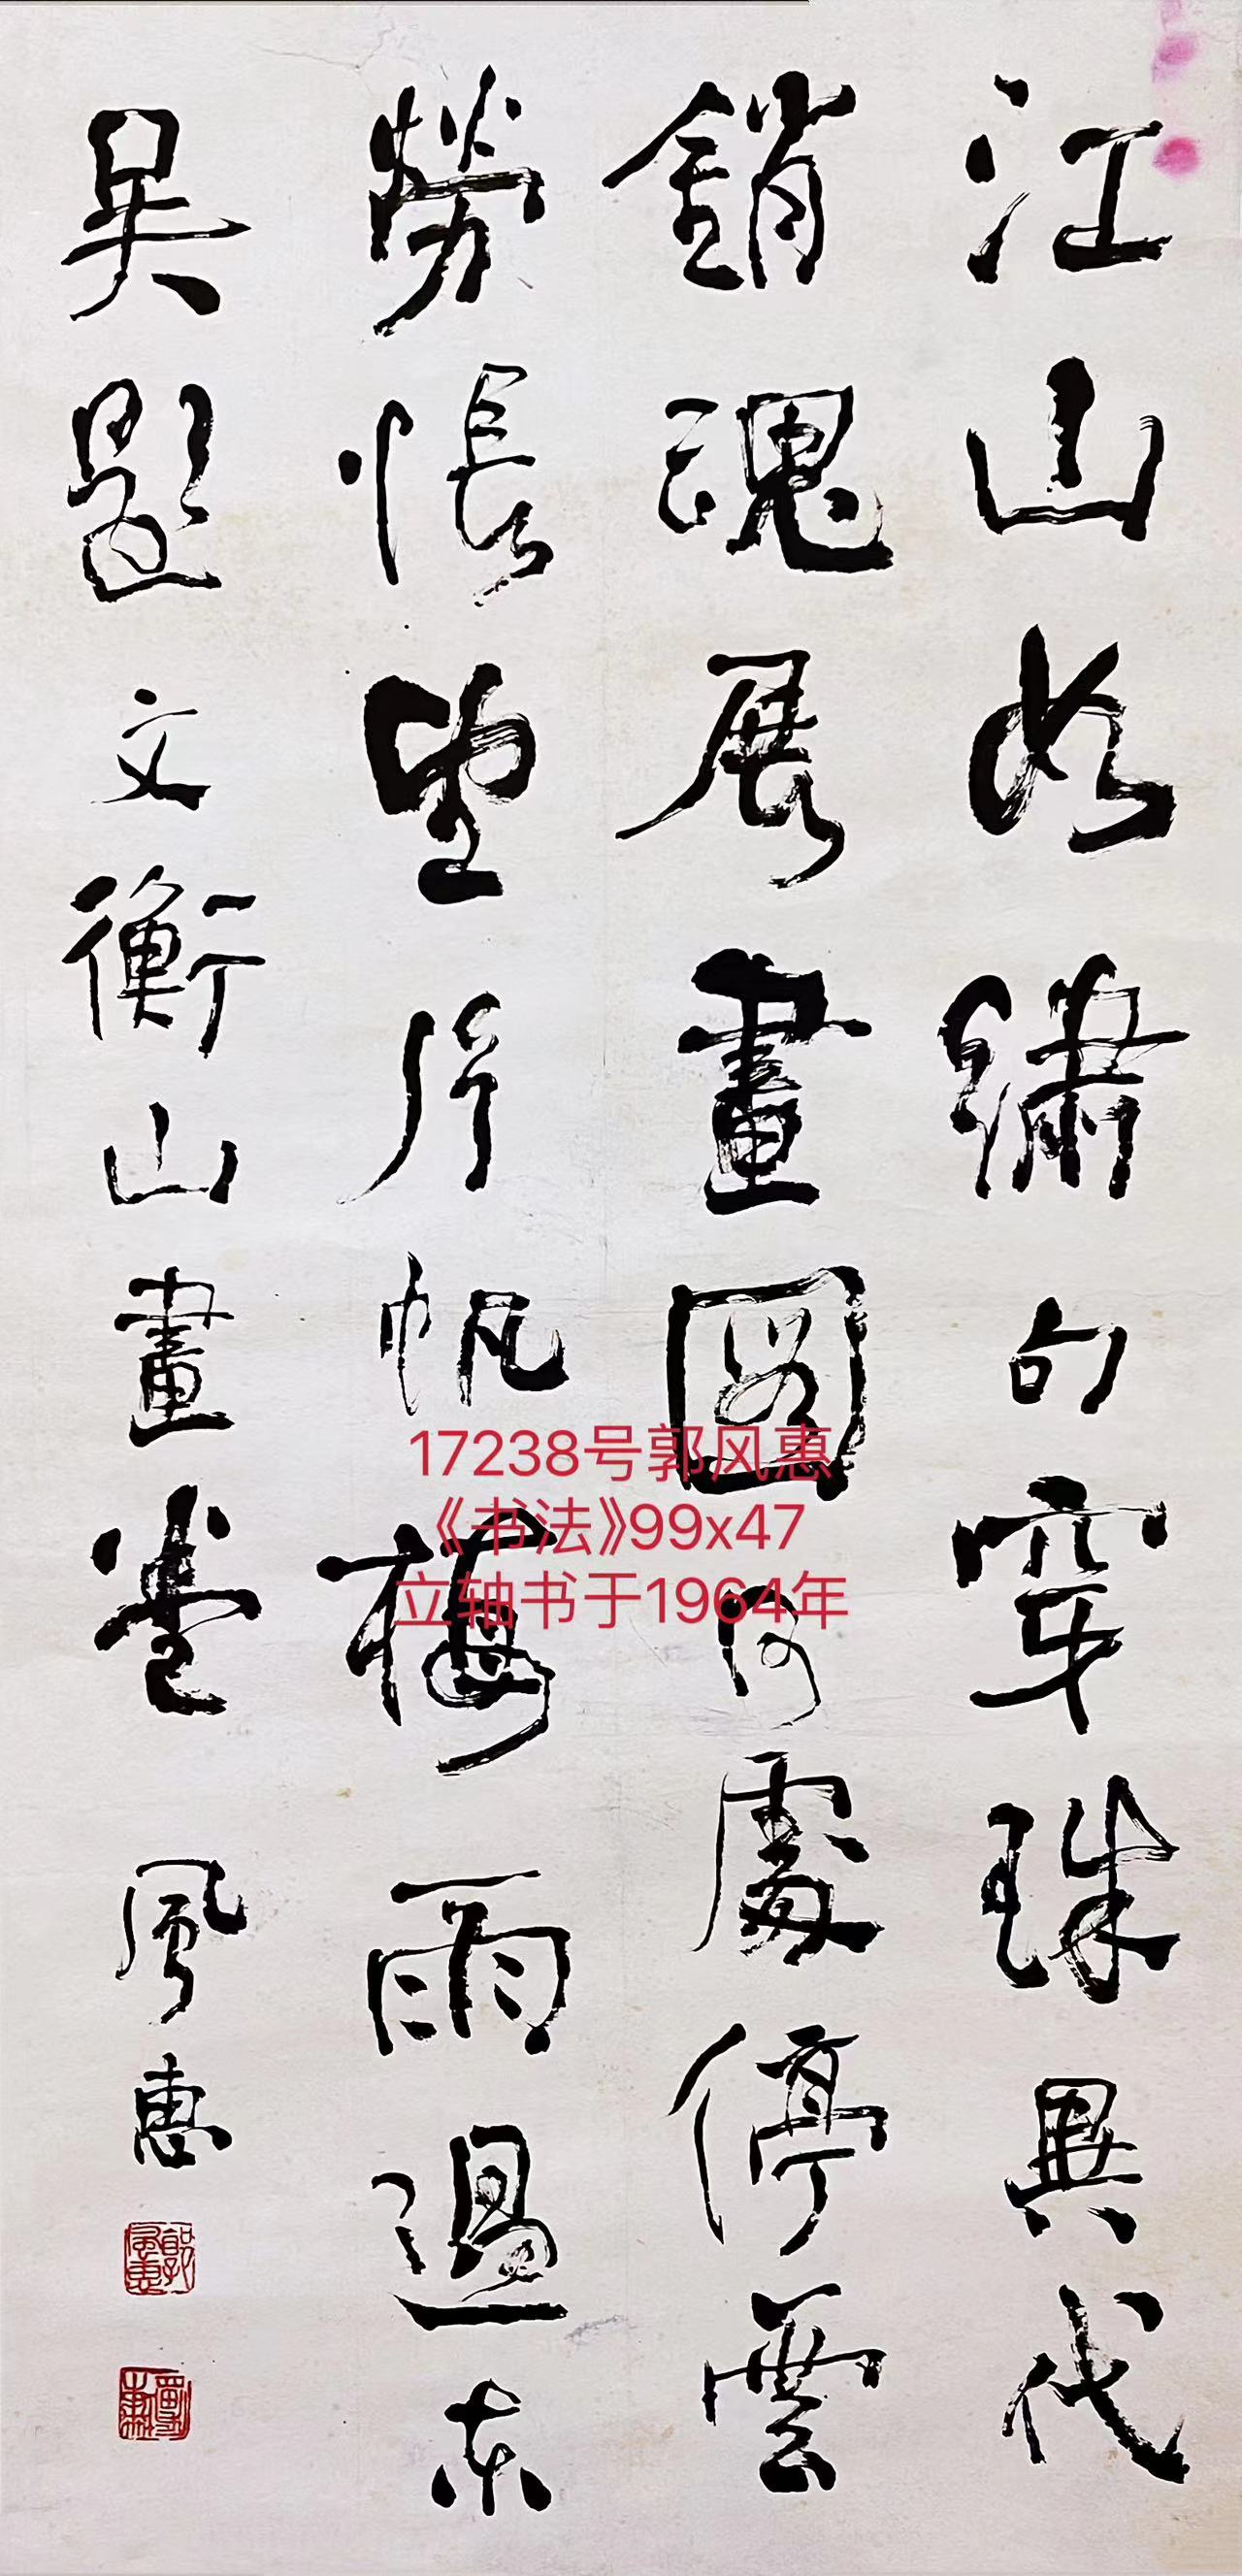 江山如繡句穿珠異代
銷魂展畫圖何處停雲
勞悵望片帆梅雨過東
吳題文衡山畫卷 風惠
17238号郭风惠
《书法》99x47
立轴书于1964年
郭風惠